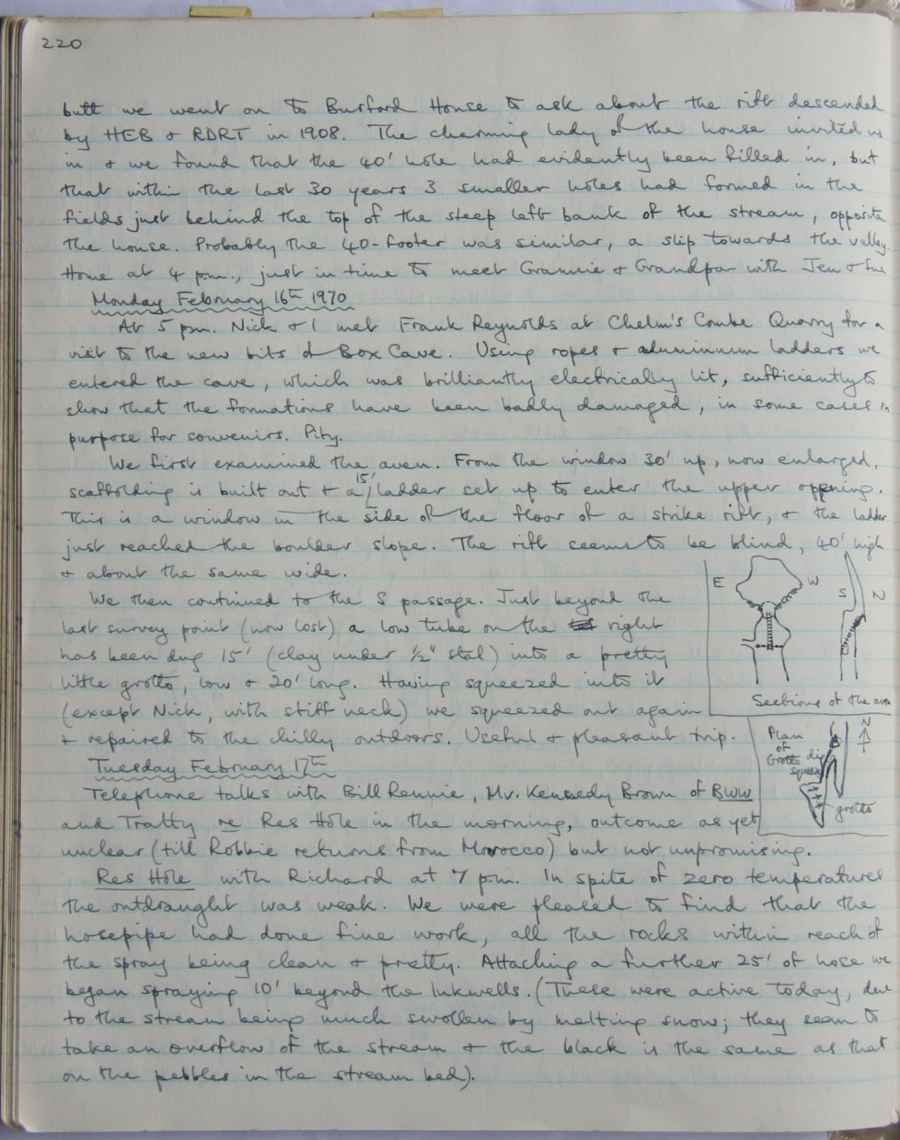 220
butt we went on to Burford House to ask about the rift descended
by HEB & RDRT in 1908. The charming lady of the house invited us
in & we found that the 40' hole had evidently been filled in, but
that within the last 30 years 3 smaller holes had formed in the
fields just behind the top of the steep left bank of the stream, opposite
the house. Probably the 40-footer was similar, a slip towards the valley.
Home at 4 pm., just in time to meet Grannie & Grandpar with Jen & Sue
Monday February 16th 1970
At 5 pm. Nick & I met Frank Reynolds at Chelm's Combe Quarry for a
visit to the new bits of Box Cave. Using ropes & aluminium ladders we
entered the cave, which was brilliantly electrically lit, sufficiently to
show that the formations have been badly damaged, in some cases on
purpose for souvenirs. Pity.
We first examined the aven. From the window 30' up, now enlarged,
scaffolding is built out & a 15' ladder set up to enter the upper opening.
This is a window in the side of the floor of a strike rift, & the ladder
just reached the boulder slope. The rift seems to be blind, 40' high
& about the same wide.
E W S N
We then continued to the S passage. Just beyond the
last survey point (now lost) a low tube on the right
has been dug 15' (clay under ½" stal) into a pretty
little grotto, low & 20' long. Having squeezed into it
Sections of the aven
(except Nick, with stiff neck) we squeezed out again
& repaired to the chilly outdoors. Useful & pleasant trip.
Plan of Grotto dig squeeze grotto N
Tuesday February 17th
Telephone talks with Bill Rennie, Mr. Kennedy Brown of BWW
and Tratty re Res Hole in the morning, outcome as yet
unclear (till Robbie returns from Morocco) but not unpromising.
Res Hole with Richard at 7 pm. In spite of zero temperatures
the outdraught was weak. We were pleased to find that the
hosepipe had done fine work, all the rocks within reach of
the spray being clean & pretty. Attaching a further 25' of hose we
began spraying 10' beyond the Inkwells. (These were active today, due
to the stream being much swollen by melting snow; they seem to
take an overflow of the stream & the black is the same as that
on the pebbles in the stream bed).